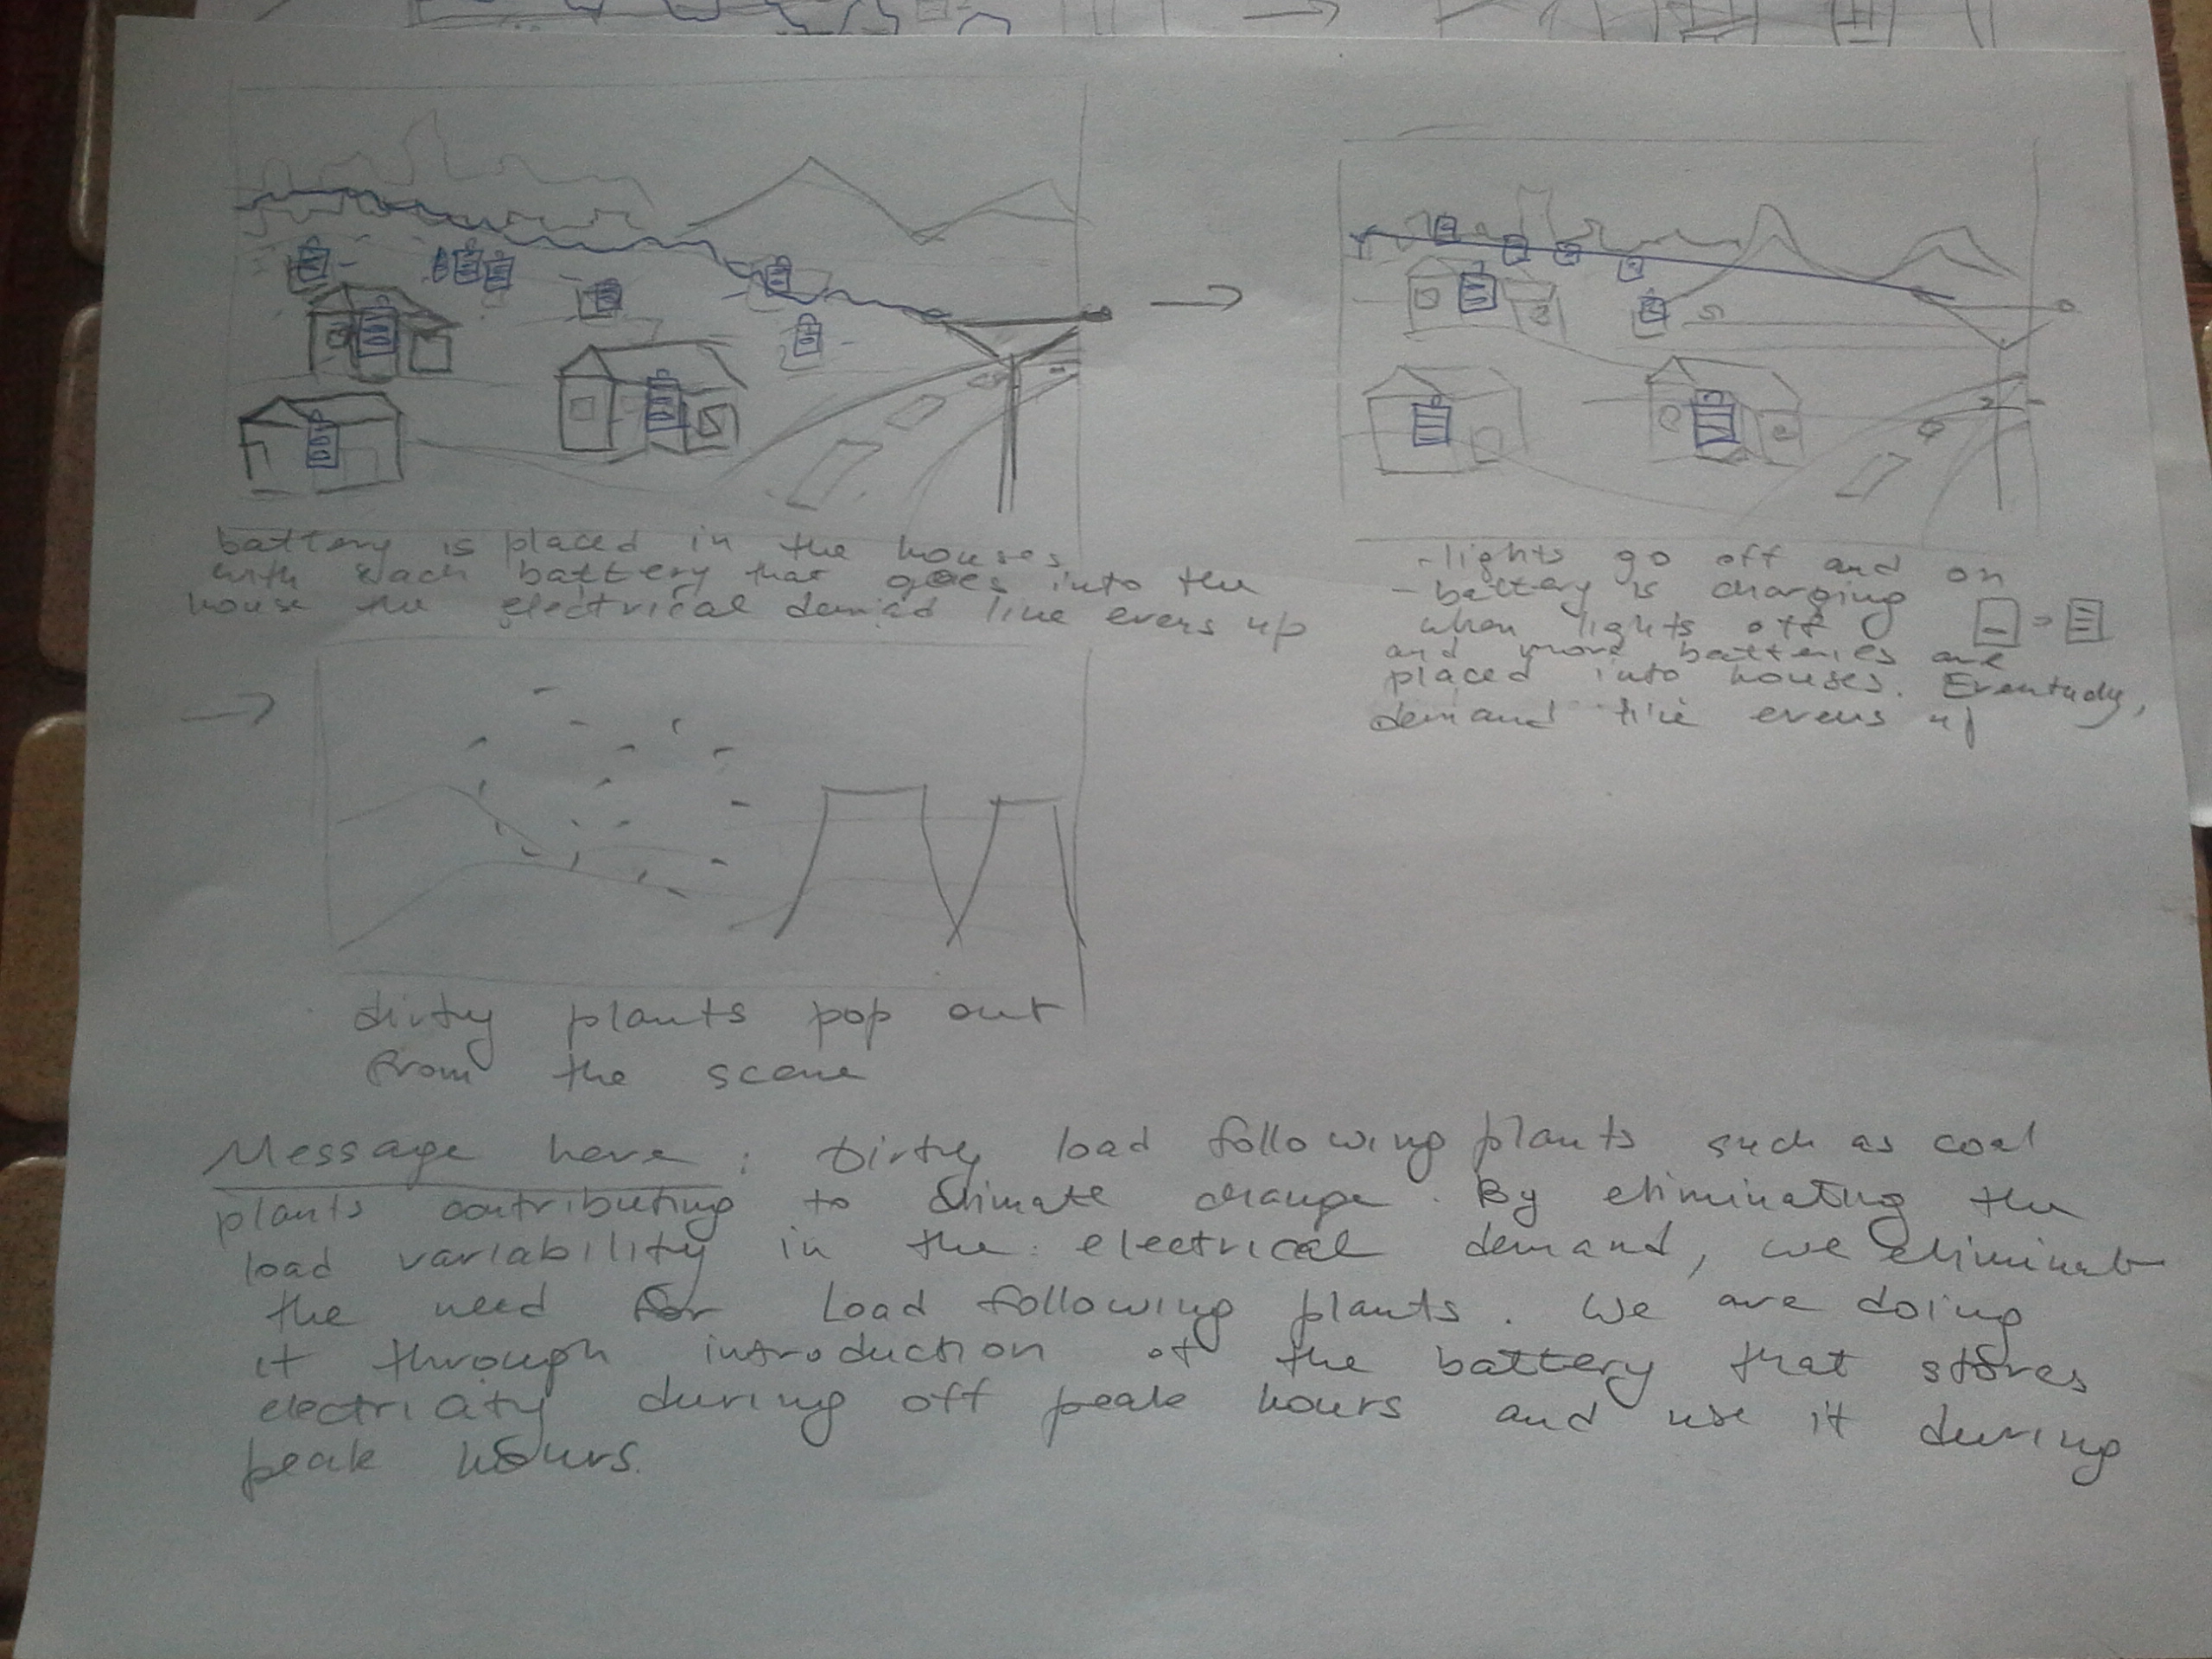 battery is placed in the houses
with each battery that goes into the
house the electrical demad line evens up
- lights go off and on
- battery is charging
when lights off
and more batteries are
placed into houses. Eventualy,
demand line evens up
dirty plants pop out
from the scene
Message here : Dirty load following plants such as coal
plants contributing to climate change. By eliminating the
load variability in the electrical demand, we eliminate
the need for Load following plants. We are doing
it through introduction of the battery that stores
electricity during off peak hours and use it during
peak hours.